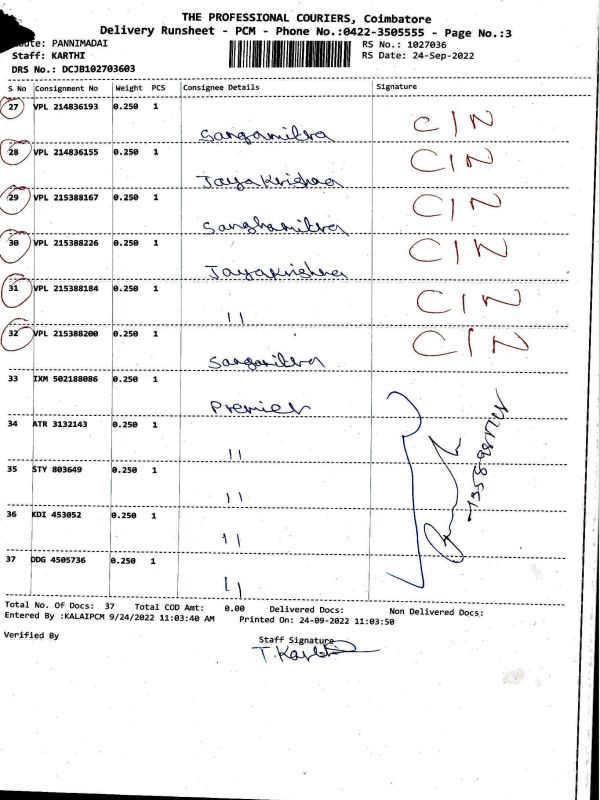 THE PROFESSIONAL COURIERS, Coimbatore
Delivery Runsheet - PCM - Phone No.:0422-3505555 - Page No.:3
PANNIMADAI RS No.: 1027036
Staff: KARTHI RS Date: 24-Sep-2022
DRS No.: DCJB102703603
S No Consignment No Weight PCS Consignee Details Signature
27 VPL 214836193 0.250 1 Sangamitra CIN
28 VPL 214836155 0.250 1 Jayakrishna CIN
29 VPL 215388167 0.250 1 Sanghamitra CIN
30 VPL 215388226 0.250 1 Jayakrishna CIN
31 VPL 215388184 0.250 1 " CIN
32 VPL 215388200 0.250 1 Sangamitra CIN
33 IXM 502188086 0.250 1 Premier
34 ATR 3132143 0.250 1 "
35 STY 803649 0.250 1 "
36 KDI 453052 0.250 1 "
37 DDG 4505736 0.250 1 "
Total No. Of Docs: 37 Total COD Amt: 0.00 Delivered Docs: Non Delivered Docs:
Entered By :KALAIPCM 9/24/2022 11:03:40 AM Printed On: 24-09-2022 11:03:50
Verified By Staff Signature
T. Karthi